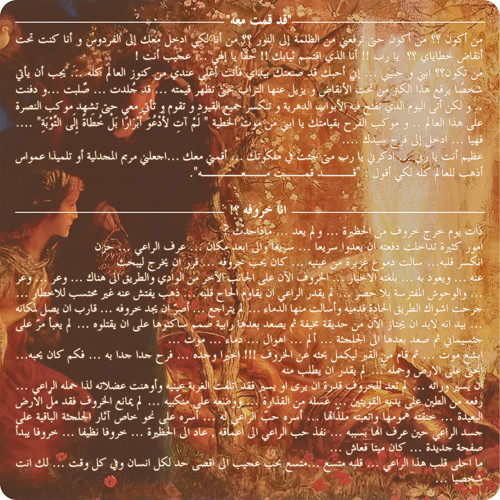 "قد قمت معه"
من أكون ؟؟ من أكون حتى ترفعني من الظلمة إلى النور ؟؟ من أنا لكي ادخل معك إلى الفردوس و أنا كنت تحت
أنقاض خطاياي ؟؟ يا رب !! أنا الذي اقتسم ثيابك !! حقا يا إلهي ... عجيب أنت !
من تكون؟؟ ابني و حبيبي ... إني أحبك قد صنعتك بيداي فأنت أغلى عندي من كنوز العالم كله ... يجب أن يأتي
شخصا يرفع هذا الكنز من تحت الأنقاض و يزيل عنها التراب حتى تظهر قيمته ... قد جُلدت ... صُلبت ... و دفنت
... و لكن أتى اليوم الذي تفتح فيه الأبواب الدهرية و تنكسر جميع القيود و تقوم و تأتي معي حتى تشهد موكب النصرة
على هذا العالم .. و موكب الفرح بقيامتك يا ابني من موت الخطية " لَمْ آتِ لأَدْعُوَ أَبْرَارًا بَلْ خُطَاةً إِلَى التَّوْبَةِ" ....
فهيا ... ادخل إلى فرح سيدك
عظيم أنت يا ربي ... اذكرني يا رب متى جئت في ملكوتك ... أقمني معك ... اجعلني مريم المجدلية أو تلميذا عمواس
أذهب للعالم كله لكي أقول : "قد قمت معه".
انا خروفه ؟!
ذات يوم خرج خروف من الحظيرة ... ولم يعد ... ماذا حدث ؟
أمور كثيرة تداخلت دفعته ان يعدوا سريعا ... سريعا والى ابعد مكان ... عرف الراعي ... حزن
انكسر قلبه ... سالت دموع عزيزة من عينيه ... كان يحب خروفه ... قرر ان يخرج ليبحث
عنه ... ويعود به ... بلغته الاخبار ... الخروف الآن على الجانب الآخر من الوادي والطريق الى هناك ... وعر ... وعر
... والوحوش المفترسة بلا حصر ... لم يقدر الراعي ان يقاوم الحاح قلبه ... ذهب يفتش عنه غير محتسب للأخطار ...
جرحت اشواك الطريق الحادة قدميه وأسالت منها الدماء ... لم يتراجع ... أصر أن يجد خروفه ... قارب ان يصل لمكانه
... بيد انه لابد ان يجتاز الآن من حديقة مخيفة ثم يصعد بعدها رابية صمم ساكنوها على ان يقتلوه ... لم يعبأ مر على
جثسيماني ثم صعد بعدها الى الجلجثة ... آلام ... اهوال ... دماء ... موت ...
ابشع موت ... ثم قام من القبر ليكمل بحثه عن الخروف !!! اخيرا وجده ... فرح جدا جدا به ... فكم كان يحبه...
انحنى على الارض وحمله ... لم يقدر ان يطلب منه
أن يسير وراءه ... لم تعد للخروف قدرة ان يرى او يسير فقد اتلفت الغربة عينيه وأوهنت عضلاته لذا حمله الراعي ...
رفعه من الطين على يديه القويتين ... غسله من القذارة ... ووضعه على منكبيه ... لم يمانع الخروف فقد مل الارض
البعيدة ... خنقته همومها واتعبته ملذاتها ... أسره حب الراعي له ... أسره على نحو خاص آثار الجلجثة الباقية على
جسد الراعي حين عرف انها بسببه ... نفذ حب الراعي الى أعماقه . عاد الى الحظيرة ... خروفا نظيفا ... خروفا يبدأ
صفحة جديدة ... كان ميتا فعاش ...
ما احلى قلب هذا الراعي ... قلبه متسع ...متسع بحب عجيب الى اقصى حد لكل انسان وفي كل وقت ... لك انت
شخصيا ...